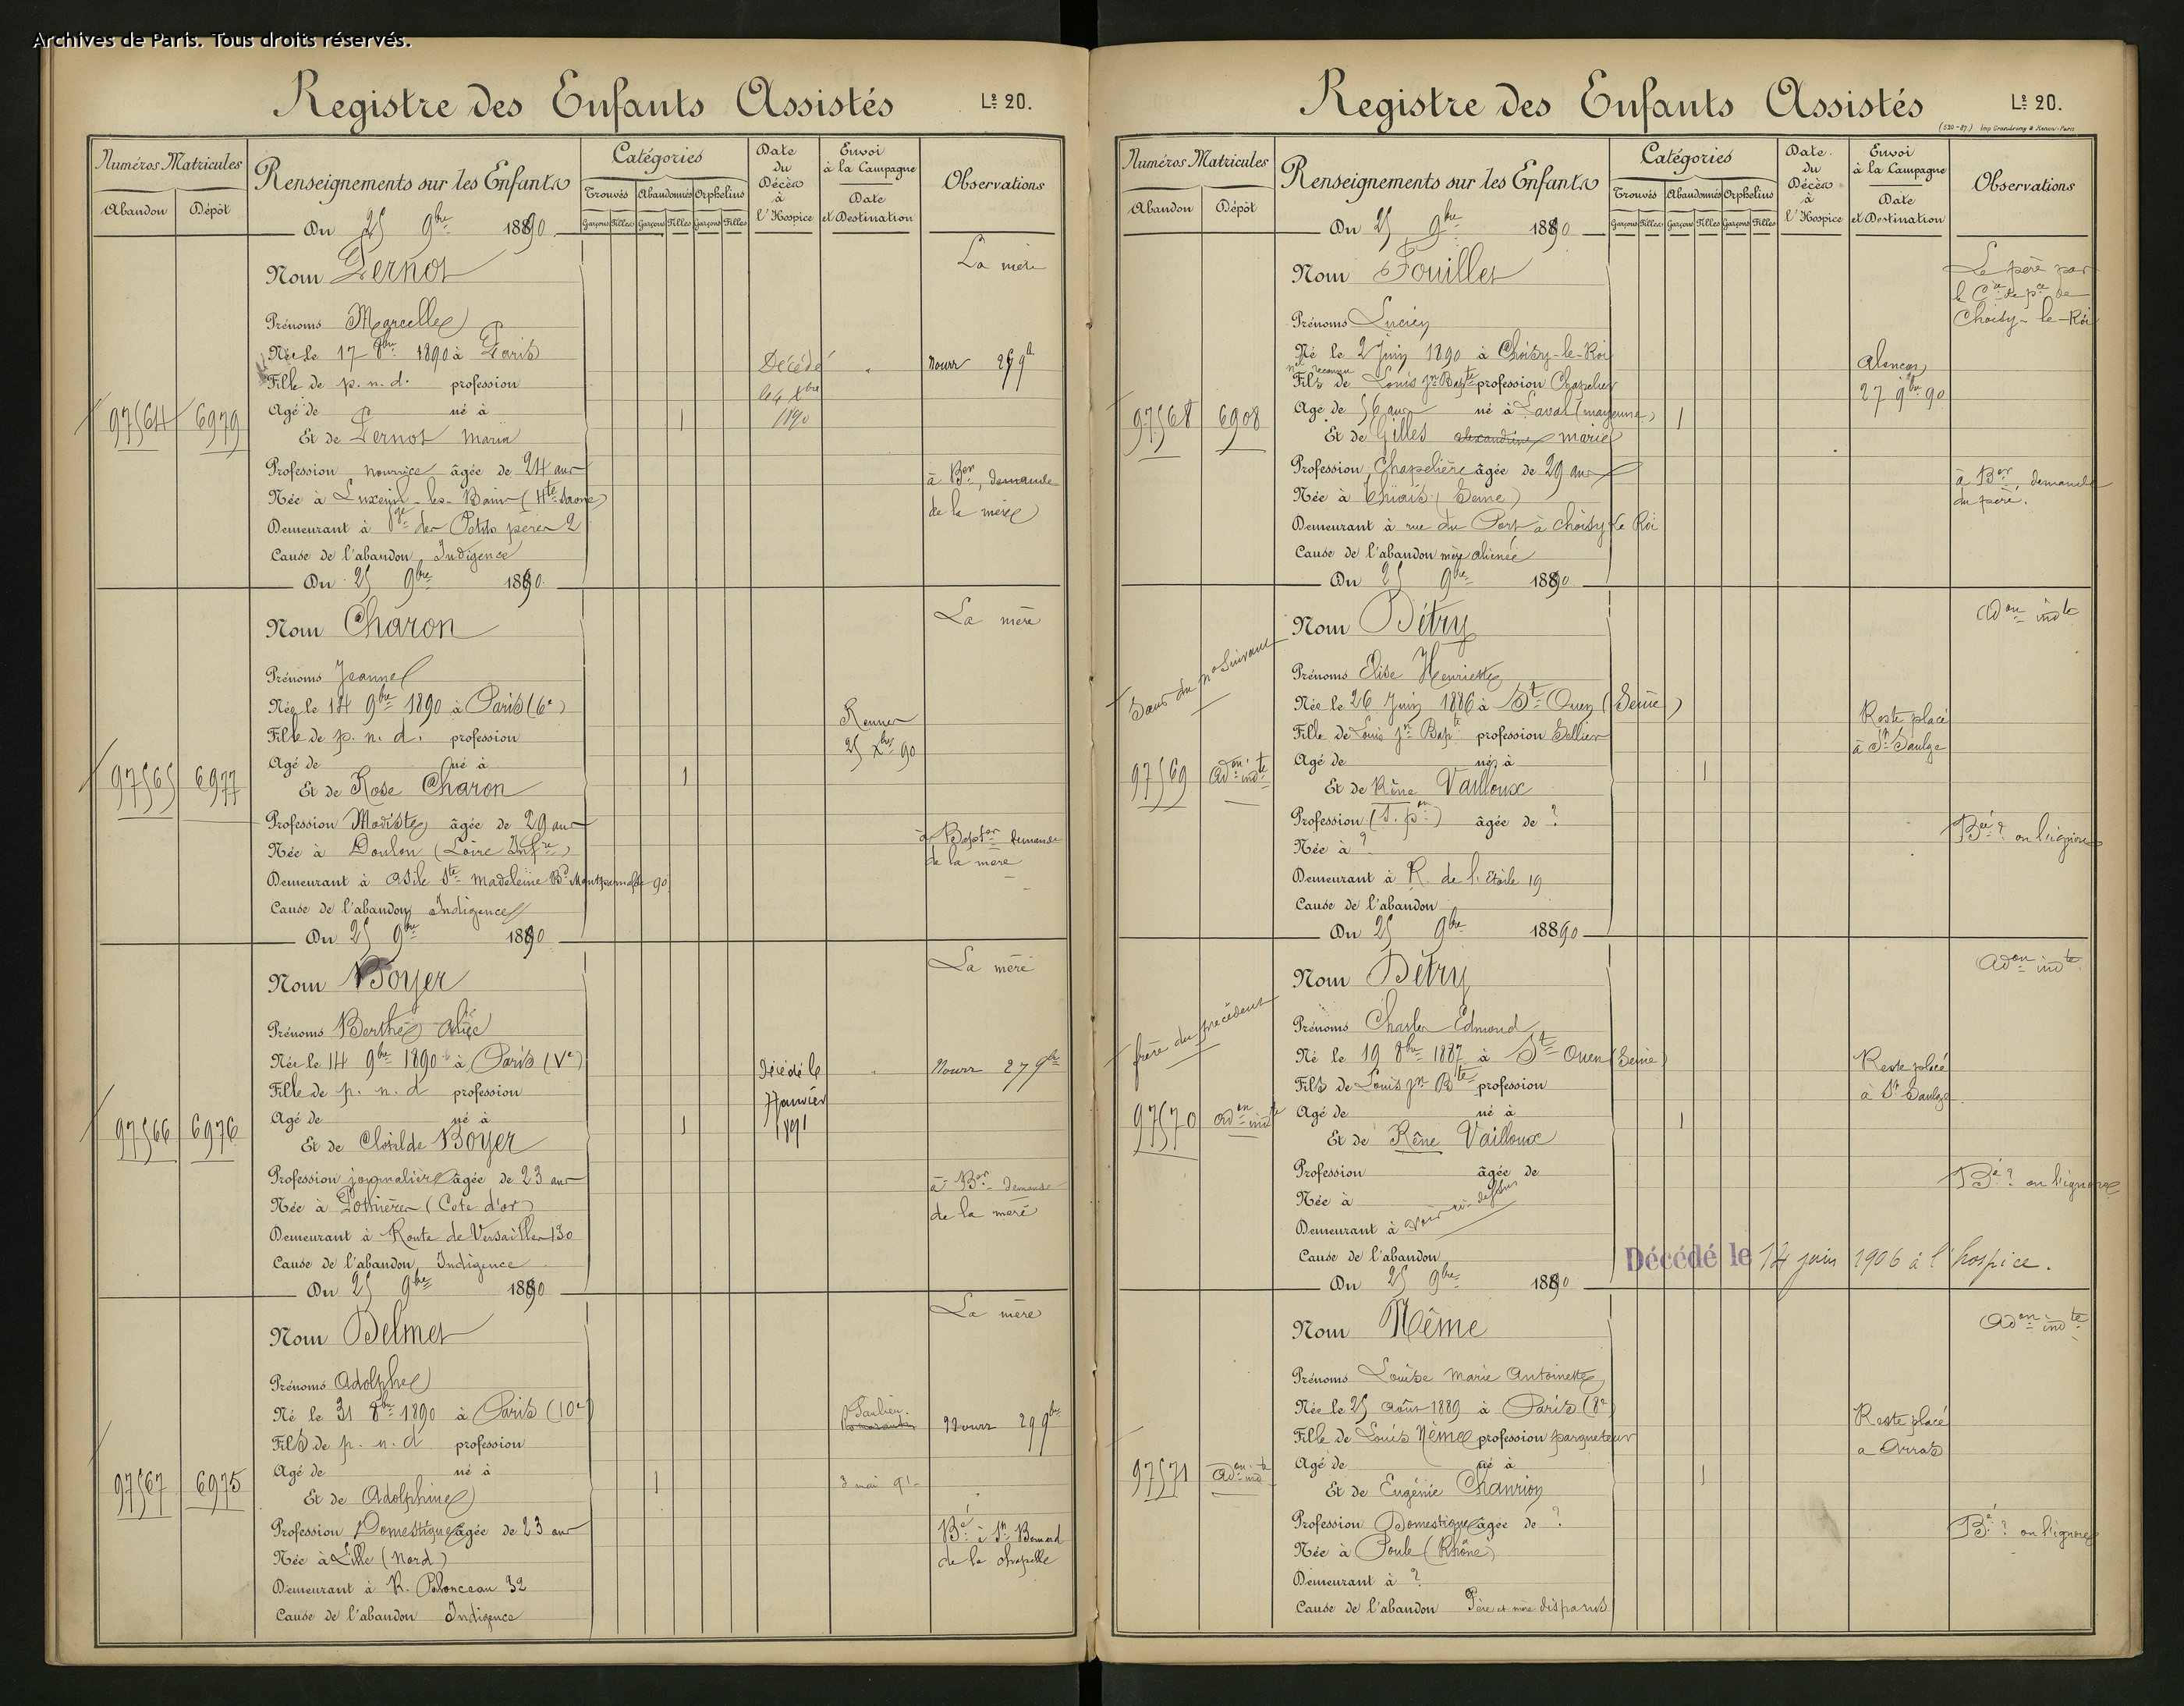 Archives de Paris. Tous droits réservés.
Registre des Enfants Assistés
Lo 20.
Numéros Matricules
Abandon
Dépôt
Renseignements sur les Enfants
Catégories
Trouvés
Abandonnés
Orphelins
Garçons Filles Garçons Filles Garçons Filles
Date du Décès à l'Hospice
Envoi à la Campagne
Date et Destination
Observations
Du 25 9bre 1890
Nom Pernot
La mère
Prénoms Marcelle
Née le 17 8bre 1890 à Paris
Décédé
le 4 Xbre
1890
Nourr 27 9b
Fille de p. n. d. profession
Agé de né à
97564 6979
1
Et de Pernot Maria
Profession nourrice âgée de 24 ans
à Bon, demande
de la mère
Née à Luxeuil-les-Bains (Hte Saone)
Demeurant à des Petits pères 2
Cause de l'abandon Indigence
Du 25 9bre 1890
Nom Charon
La mère
Prénoms Jeanne
Née le 14 9bre 1890 à Paris (6e)
Rennes
25 Xbre 90
Fille de p. n. d. profession
Agé de né à
97565 6977
1
Et de Rose Charon
Profession Modiste âgée de 29 ans
à demande
de la mère
Née à Doulon (Loire Infre)
Demeurant à Asile Ste Madeleine Bd Montparnasse 90
Cause de l'abandon Indigence
Du 25 9bre 1890
Nom Boyer
La mère
Prénoms Berthe Alice
Née le 14 9bre 1890 à Paris (Ve)
Décédé le
7 Janvier
1891
Nourr 27 9bre
Fille de p. n. d profession
Agé de né à
97566 6976
1
Et de Clotilde Boyer
Profession journalière âgée de 23 ans
à Bon demande
de la mère
Née à Pothières (Cote d'or)
Demeurant à Route de Versailles 130
Cause de l'abandon Indigence
Du 25 9bre 1890
Nom Delmet
La mère
Prénoms Adolphe
Né le 31 8bre 1890 à Paris (10e)
Saulieu
Romorantin
Nourr 29 9bre
Fils de p. n. d profession
Agé de né à
97567 6975
1
3 mai 91
Et de Adolphine
Profession Domestique âgée de 23 ans
Bé à St Bernard
de la chapelle
Née à Lille (Nord)
Demeurant à R. Polonceau 32
Cause de l'abandon Indigence
Registre des Enfants Assistés
Lo 20.
Numéros Matricules
Abandon
Dépôt
Renseignements sur les Enfants
Catégories
Trouvés
Abandonnés
Orphelins
Garçons Filles Garçons Filles Garçons Filles
Date du Décès à l'Hospice
Envoi à la Campagne
Date et Destination
Observations
Du 25 9bre 1890
Nom Fouillet
Le père par
le Cre de pce de
Choisy-le-Roi
Prénoms Lucien
Né le 2 Juin 1890 à Choisy-le-Roi
Alençon
27 9bre 90
Fils de Louis Jn Bapte profession Chapelier
Agé de 56 ans né à Laval (mayenne)
97568 6908
1
Et de Gilles alexandrine marie
Profession Chapelière âgée de 29 ans
à Bon, demande
du père.
Née à Thiais (Seine)
Demeurant à rue du Port à choisy le Roi
Cause de l'abandon mère aliénée
Du 25 9bre 1890
Nom Détry
Adon indte
Soeur du no suivant
Prénoms Elise Henriette
Née le 26 Juin 1886 à St Ouen (Seine)
Reste placé
à St Saulge
Fille de Louis Jn Bapte profession Sellier
Agé de né à
97569 Adon indte
1
Et de Rêne Vailloux
Profession (S. pon) âgée de ?
Bée ? on l'ignore
Née à ?
Demeurant à R. de l'Etoile 19
Cause de l'abandon
Du 25 9bre 1890
Nom Détry
Adon indte
frère du précédent
Prénoms Charles Edmond
Né le 19 8bre 1887 à St Ouen (Seine)
Reste placé
à St Saulge
Fils de Louis Jn Bte profession
Agé de né à
97570 Adon indte
1
Et de Rêne Vailloux
Profession âgée de
Bé ? on l'ignore
Née à
Demeurant à voir ci-dessus
Cause de l'abandon
Décédé le 14 juin 1906 à l'hospice.
Du 25 9bre 1890
Nom Nême
Adon indte
Prénoms Louise Marie Antoinette
Née le 25 Août 1889 à Paris (8e)
Reste placé
a Arras
Fille de Louis Nême profession parqueteur
Agé de né à
97571 Adon indte
1
Et de Eugénie Chanrion
Profession Domestique âgée de ?
Bé ? on l'ignore
Née à Poule (Rhône)
Demeurant à ?
Cause de l'abandon Père et mère disparus